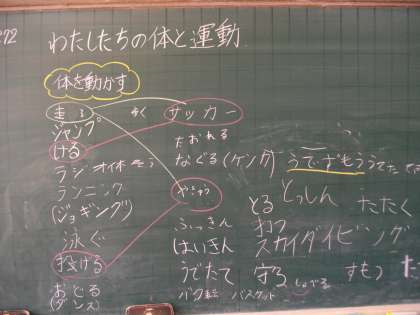 わたしたちの体と運動
体を動かす
走る
歩く
サッカー
ジャンプ。
ける
たおれる
なぐる(ケンカ)
うでずもう
ランニング
(ジョギング)
やきゅう
とる
とっしん
たたく
泳ぐ
ふっきん
打つ
スカイダイビング
投げる
はいきん
おどる
(ダンス)
うでたて
守る
すべる
すもう
バク転
バスケット